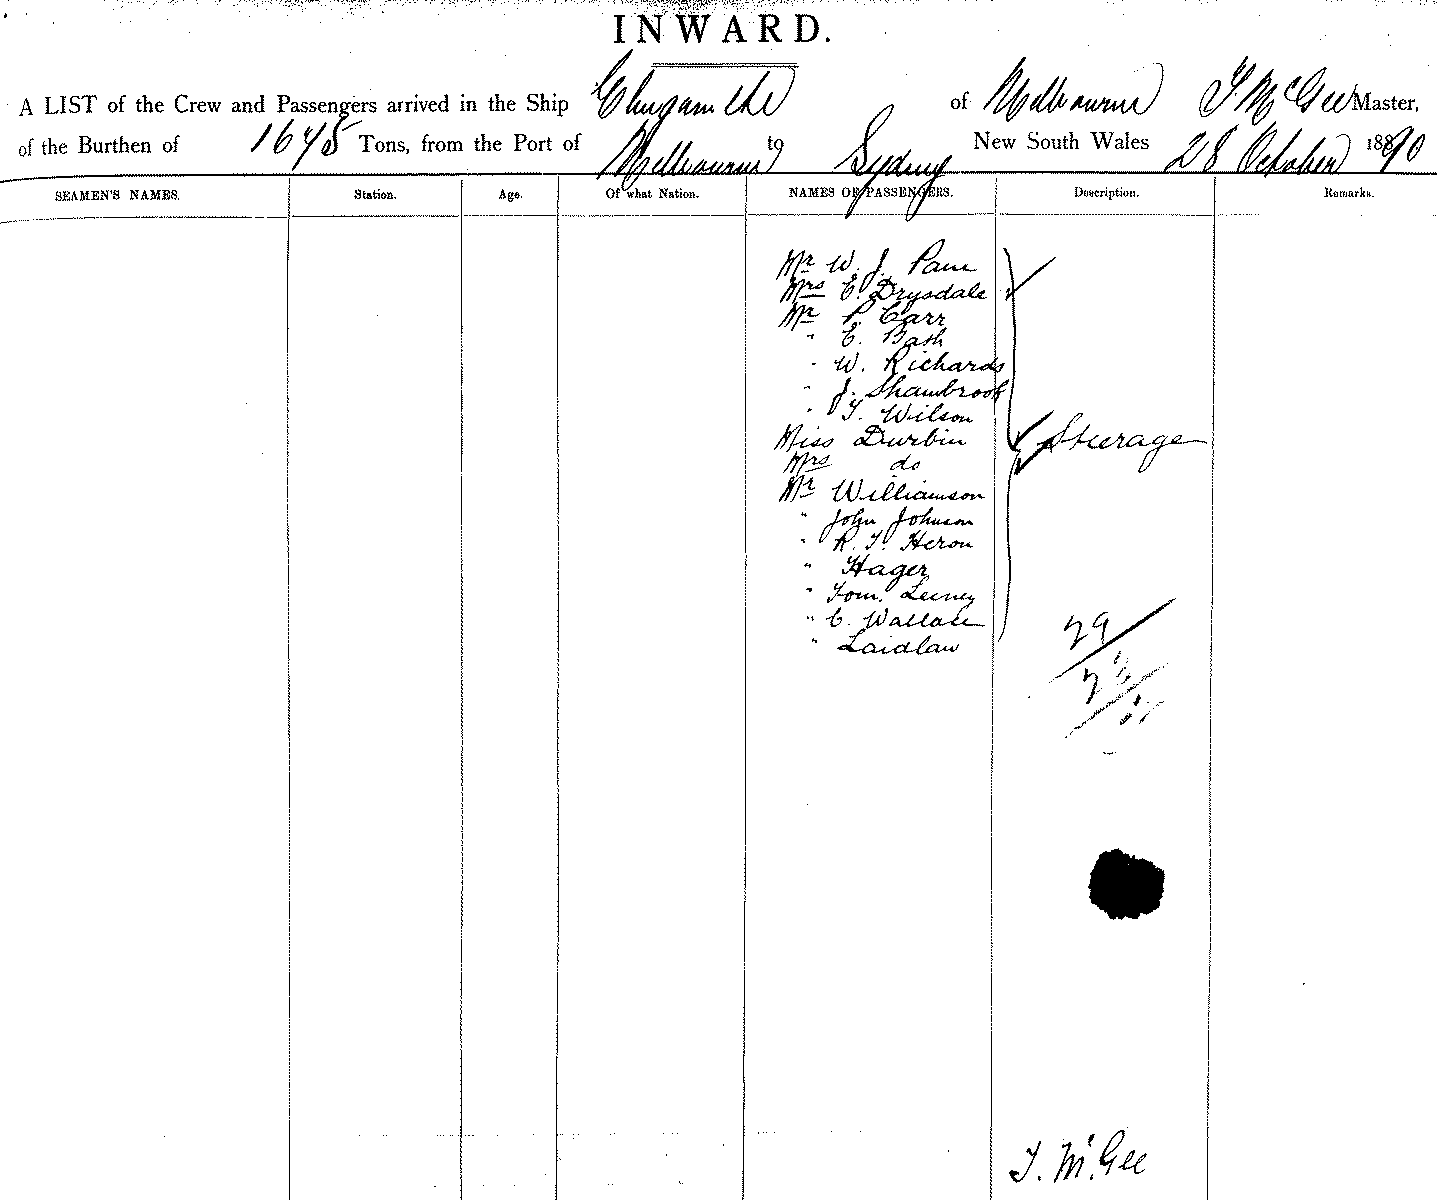 INWARD.
A LIST of the Crew and Passengers arrived in the Ship of Melbourne T McGee Master,
of the Burthen of 1645 Tons, from the Port of Melbourne to Sydney New South Wales 28 October 1890
SEAMEN'S NAMES. Station. Age. Of what Nation. NAMES OF PASSENGERS. Description. Remarks.
Mr W. J. Pain
Mrs E. Drysdale
Mr P. Carr
" E. Bash
" W. Richards
" J. Shambrook
" T. Wilson
Miss Durbin Steerage
Mrs do
Mr Williamson
" John Johnson
" R. T. Heron
" Hager
" Tom. Leeney
" C. Wallace
" Laidlaw
T. McGee